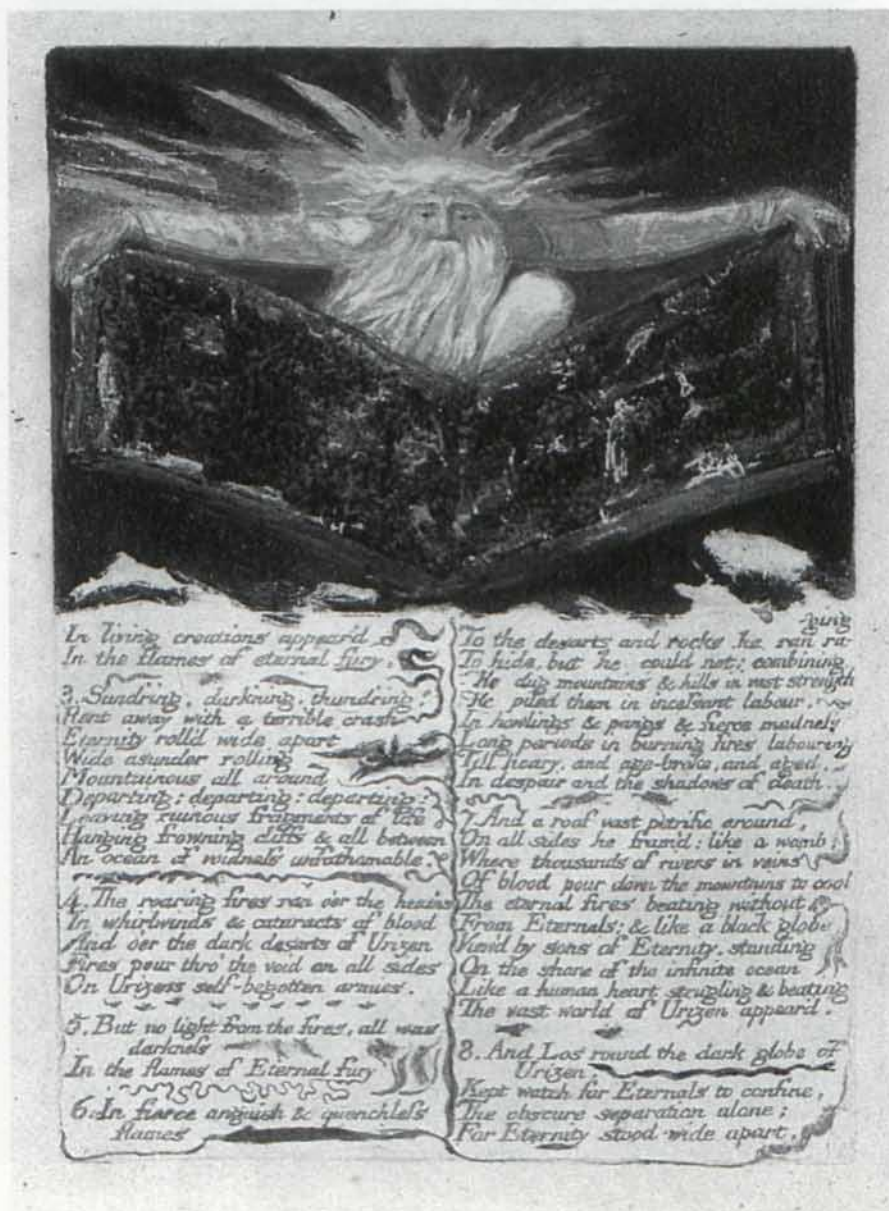 In living creations appear'd
In the flames of eternal fury.
3. Sundring, darkning, thundring!
Rent away with a terrible crash
Eternity roll'd wide apart
Wide asunder rolling
Mountainous all around
Departing; departing; departing:
Leaving ruinous fragments of life
Hanging frowning cliffs & all between
An ocean of voidness unfathomable.
4. The roaring fires ran o'er the heav'ns
In whirlwinds & cataracts of blood
And o'er the dark desarts of Urizen
Fires pour thro' the void on all sides
On Urizens self-begotten armies.
5. But no light from the fires, all was
darkness
In the flames of Eternal fury
6. In fierce anguish & quenchless
flames
-ging
To the desarts and rocks he ran ra-
To hide, but he could not; combining
He dug mountains & hills in vast strength
He piled them in incessant labour,
In howlings & pangs & fierce madness
Long periods in burning fires labouring
Till hoary, and age-broke, and aged,
In despair and the shadows of death.
7. And a roof vast petrific around,
On all sides he fram'd: like a womb;
Where thousands of rivers in veins
Of blood pour down the mountains to cool
The eternal fires beating without
From Eternals; & like a black globe
View'd by sons of Eternity, standing
On the shore of the infinite ocean
Like a human heart strugling & beating
The vast world of Urizen appear'd.
8. And Los round the dark globe of
Urizen,
Kept watch for Eternals to confine,
The obscure separation alone;
For Eternity stood wide apart,